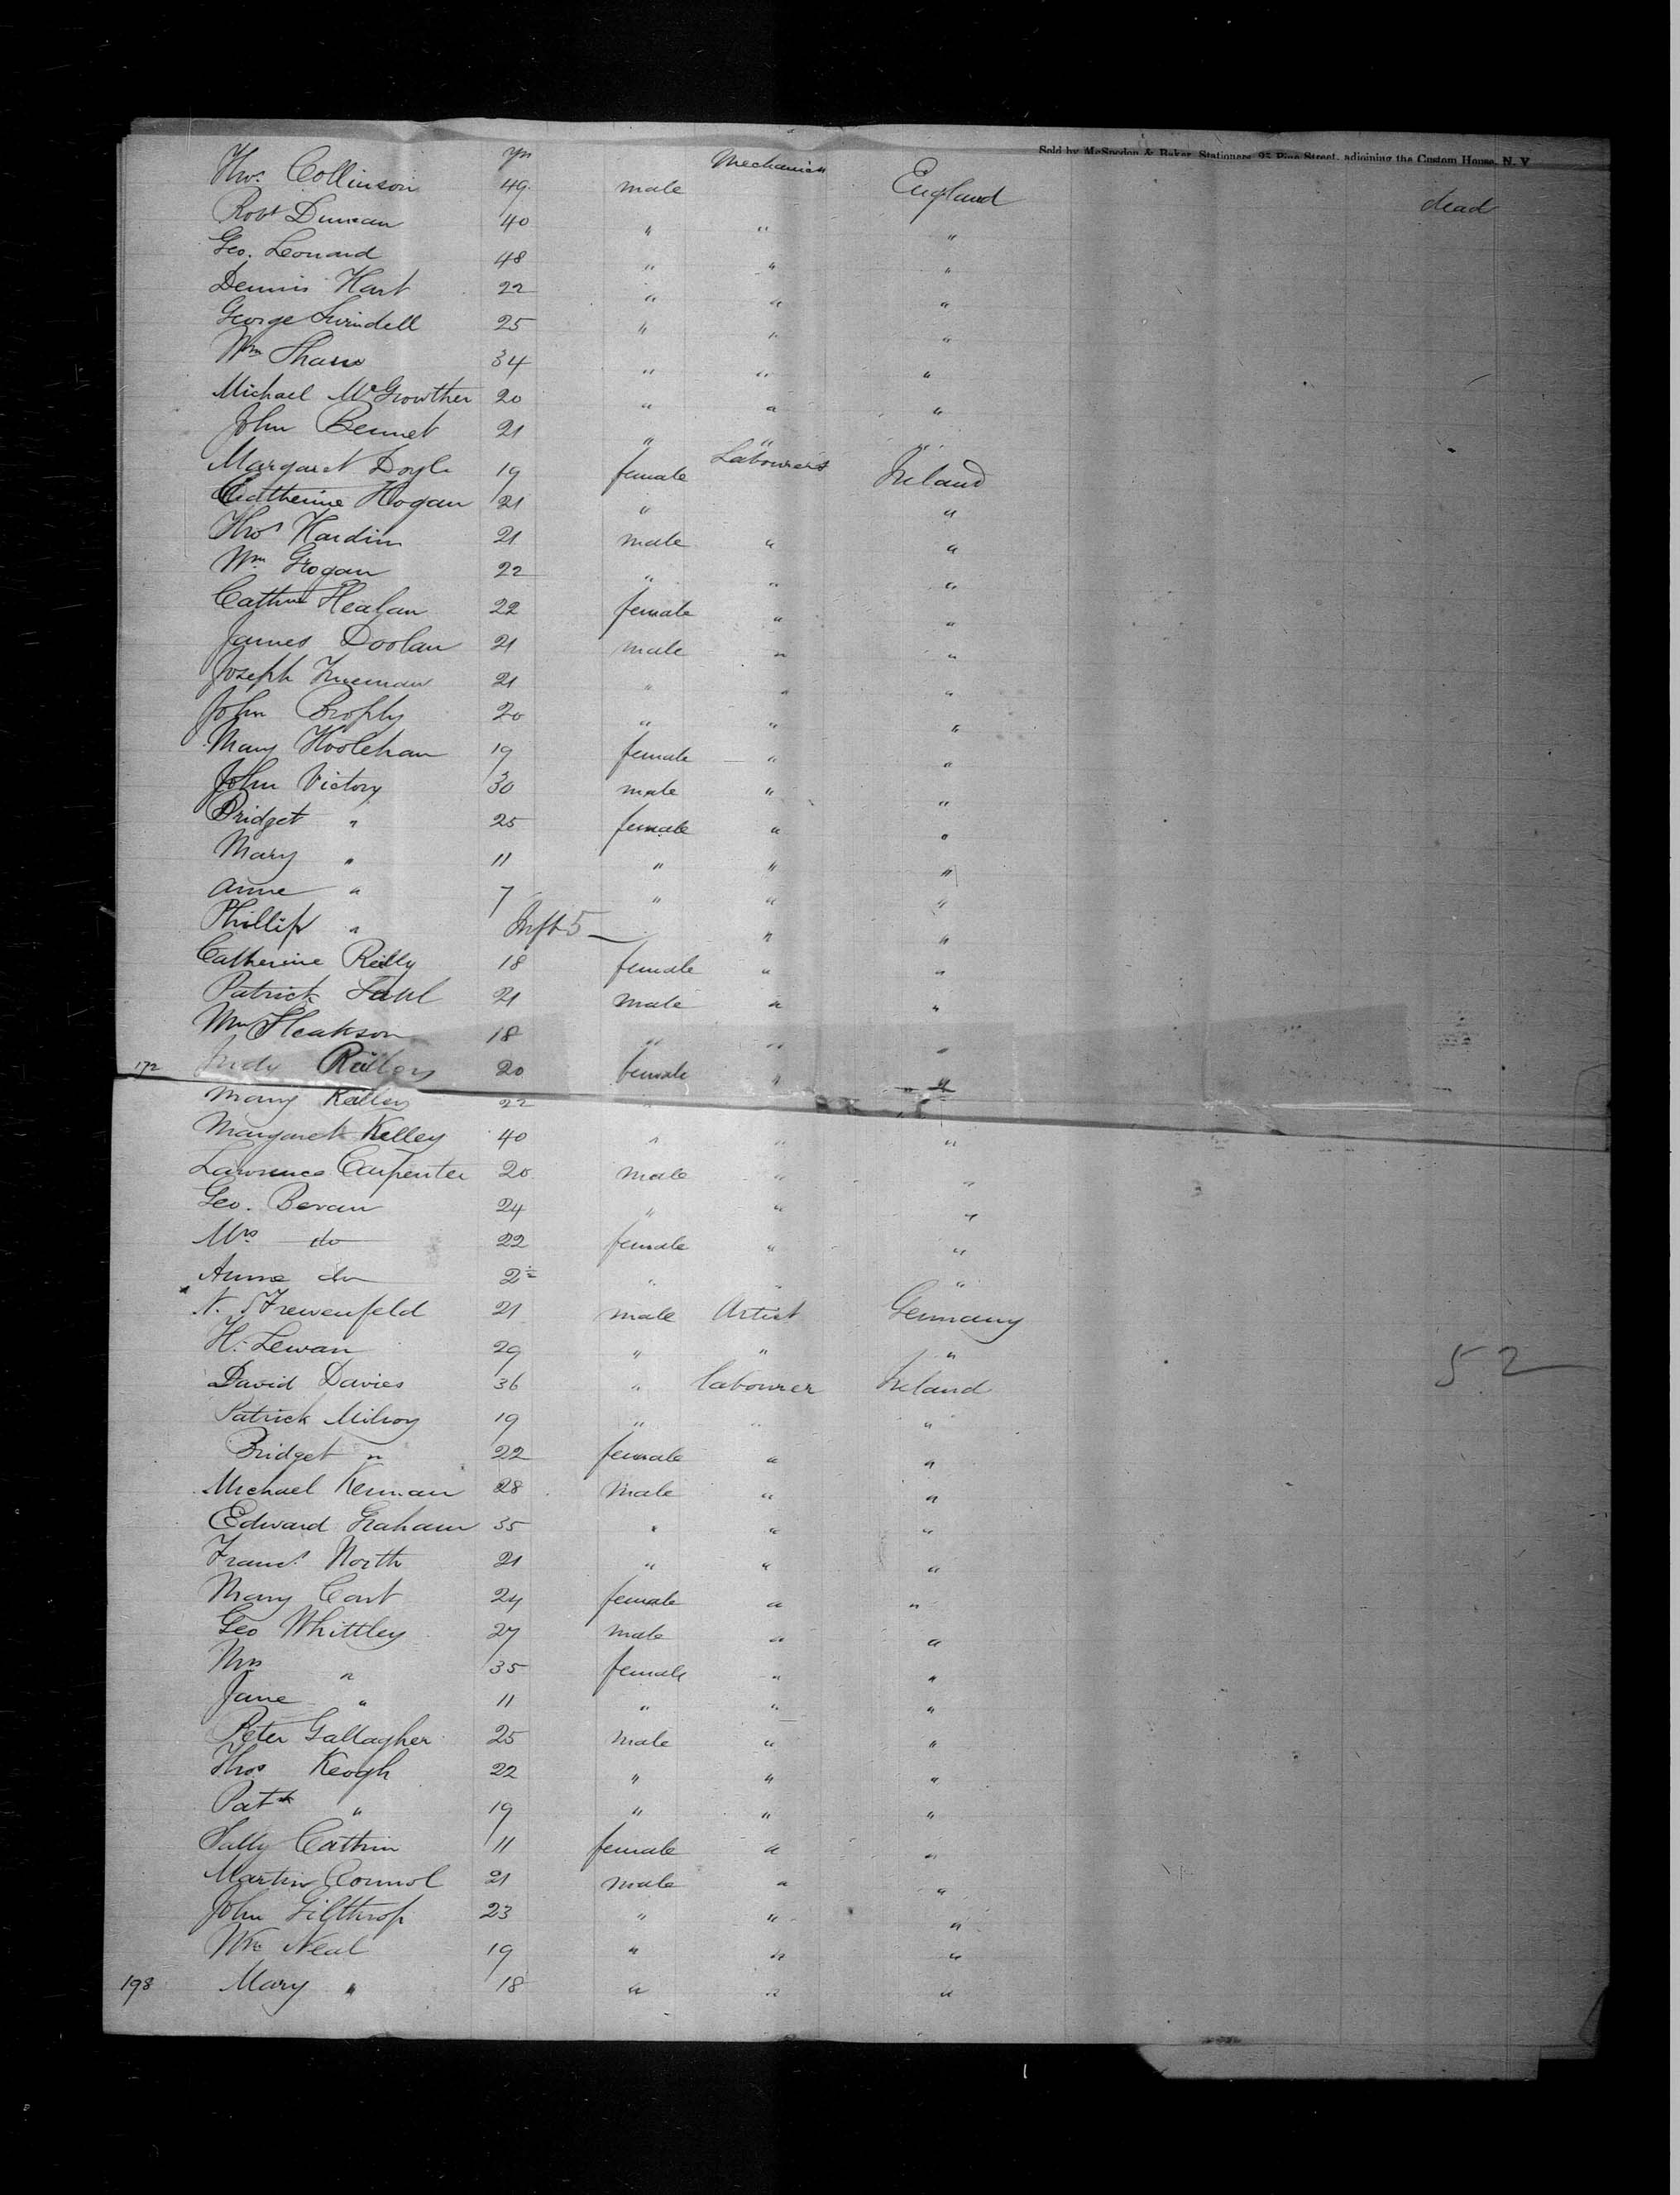 Sold by McSpedon & Baker, Stationers, 25 Pine Street, adjoining the Custom House, N. Y
yrs Mechanics
Thos Collinson 49 male England dead
Robt Duncan 40 " " "
Geo. Leonard 48 " " "
Dennis Hart 22 " " "
George Swindell 25 " " "
Wm Shaw 34 " " "
Michael McGrowther 20 " " "
John Bennet 21 " " "
Margaret Doyle 19 female Labourers Ireland
Catherine Hogan 21 " "
Thos Hardin 21 male " "
Wm Grogan 22 " " "
Cathne Healan 22 female " "
James Doolan 21 male " "
Joseph Trueman 21 " " "
John Brophy 20 " " "
Mary Hoolehan 19 female " "
John Victory 30 male " "
Bridget " 25 female " "
Mary " 11 " " "
Anne " 7 " " "
Phillip " Inft 5 " "
Catherine Reilly 18 female " "
Patrick 21 male " "
Wm 18 " " "
172 Judy 20 female " "
Mary 22 "
Margaret Kelley 40 " " "
Lawrence Carpenter 20 male " "
Geo. Bevan 24 " " "
Mrs do 22 female " "
Anne do 2 " " "
N. 21 male Artist Germany
H. Lewan 29 " " "
52
David Davies 36 " labourer Ireland
Patrick Milroy 19 " " "
Bridget " 22 female " "
Michael Kernan 28 male " "
Edward Graham 35 " " "
Francs North 21 " " "
Mary Cart 24 female " "
Geo Whittley 27 male " "
Mrs " 35 female " "
Jane " 11 " " "
Peter Gallagher 25 male " "
Thos Keogh 22 " " "
Patk " 19 " " "
Sally Cathin 11 female " "
Martin Connol 21 male " "
John Gilthrop 23 " " "
Wm Neal 19 " " "
198 Mary " 18 " " "